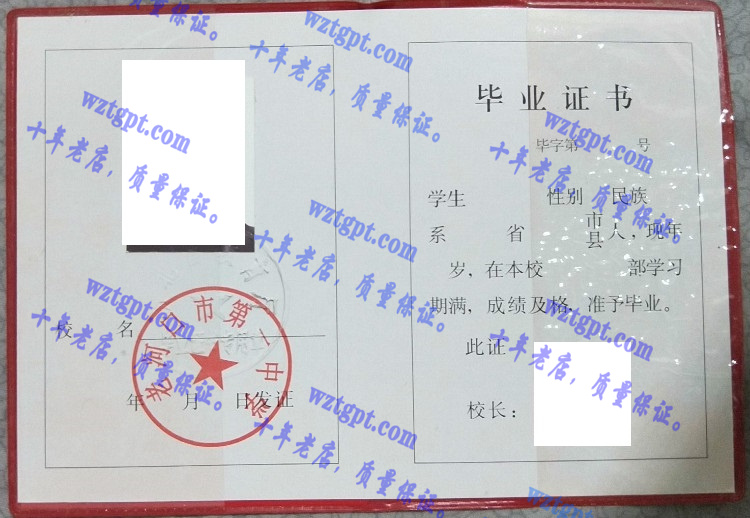 毕业证书
毕字第 号
学生 性别 民族
系 省 市县人，现年
岁，在本校 部学习
期满，成绩及格，准予毕业。
此证
校长：
校 名
老河口市第一中学
年 月 日发证
wztgpt.com
十年老店，质量保证。
wztgpt.com
十年老店，质量保证。
wztgpt.com
十年老店，质量保证。
wztgpt.com
十年老店，质量保证。
wztgpt.com
十年老店，质量保证。
wztgpt.com
十年老店，质量保证。
wztgpt.com
十年老店，质量保证。
wztgpt.com
十年老店，质量保证。
wztgpt.com